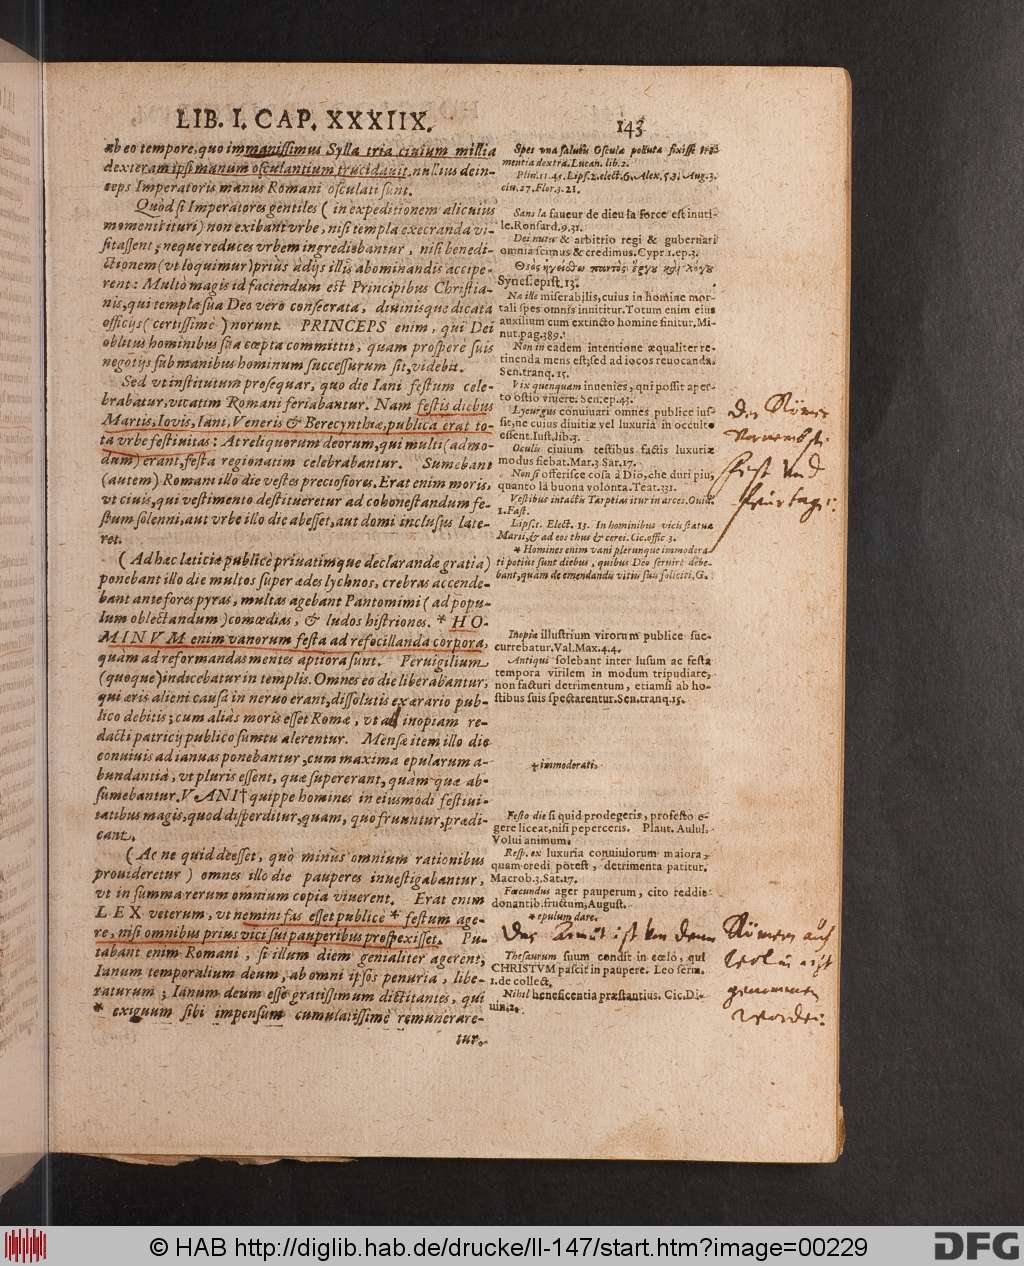 LIB. I. CAP. XXXIIX.
143
ab eo tempore, quo immanissimus Sylla tria civium millia
dexteram ipsi manum osculantium trucidavit, nullius dein-
ceps Imperatoris manus Romani osculati sunt.
Quòd si Imperatores gentiles ( in expeditionem alicuius
momenti ituri) non exibant vrbe, nisi templa execranda vi-
sitassent; neque reduces vrbem ingrediebantur, nisi benedi-
ctionem (vt loquimur) priùs à dijs illis abominandis accipe-
rent: Multò magis id faciendum est Principibus Christia-
nis, qui templa sua Deo vero consecrata, diuinisque dicata
officijs (certissimè) norunt. PRINCEPS enim, qui Dei
oblitus hominibus sua cœpta committit, quam prosperè suis
negotijs sub manibus hominum successurum sit, videbit.
Sed vt institutum prosequar, quo die Iani festum cele-
brabatur, vicatim Romani feriabantur. Nam festis diebus
Martis, Iovis, Iani, Veneris & Berecynthiæ, publica erat to-
ta vrbe festiuitas: At reliquorum deorum, qui multi (admo-
dum) erant, festa regionatim celebrabantur. Sumebant
(autem) Romani illo die vestes preciosiores. Erat enim moris,
vt ciuis, qui vestimento destitueretur ad cohonestandum fe-
stum solenni, aut vrbe illo die abesset, aut domi inclusus late-
ret.
( Ad hæc lætitiæ publicè priuatimque declarandæ gratia)
ponebant illo die multos super ædes lychnos, crebras accende-
bant ante fores pyras, multas agebant Pantomimi ( ad popu-
lum oblectandum ) comœdias, & ludos histriones. * HO-
MINVM enim vanorum festa ad refocillanda corpora,
quàm ad reformandas mentes aptiora sunt. Pervigilium
(quoque) indicebatur in templis. Omnes eo die liberabantur,
qui æris alieni causâ in neruo erant, dissolutis ex ærario pub-
lico debitis; cum aliàs moris esset Romæ, vt ad inopiam re-
dacti patricij publico sumtu alerentur. Mensæ item illo die
conuiuis ad ianuas ponebantur, cum maxima epularum a-
bundantia, vt pluris essent, quæ supererant, quàm quæ ab-
sumebantur. VANI† quippe homines in eiusmodi festiui-
tatibus magis, quod disperditur, quam, quo fruuntur, prædi-
cant.
( Ac ne quid deesset, quò minùs omnium rationibus
provideretur ) omnes illo die pauperes inuestigabantur,
vt in summa rerum omnium copia viuerent. Erat enim
LEX veterum, vt nemini fas esset publicè * festum age-
re, nisi omnibus prius vici sui pauperibus prospexisset. Pu-
tabant enim Romani, si illum diem genialiter agerent,
Ianum temporalium deum, ab omni ipsos penuria, libe-
raturum; Ianum deum esse gratissimum dictitantes, qui
* exiguum sibi impensum cumulatissimè remunerare-
tur.
Spes vna salutis Oscula polluta fixisse tre-
mentia dextra. Lucan. lib. 2.
Plin. 11.45. Lips. 2. elect. 6. Alex. 5.31. Aug. 3.
ciu. 27. Flor. 3. 21.
Sans la faueur de dieu la force est inuti-
le. Ronsard. 9. 31.
Dei nutu & arbitrio regi & gubernari
omnia scimus & credimus. Cypr. 1. ep. 3.
Θεὸς ἡγείσθω παντὸς ἔργου καὶ λόγου
Synes. epist. 13.
Næ ille miserabilis, cuius in homine mor-
tali spes omnis innititur. Totum enim eius
auxilium cum extincto homine finitur. Mi-
nut. pag. 389.
Non in eadem intentione æqualiter re-
tinenda mens est; sed ad iocos reuocanda.
Sen. tranq. 15.
Vix quenquam inuenies, qui possit aper-
to ostio viuere. Sen. ep. 43.
Lycurgus conuiuari omnes publicè ius-
sit, ne cuius diuitiæ vel luxuria in occulto
essent. Iust. lib. 3.
Oculis ciuium testibus factis luxuriæ
modus fiebat. Mar. 3 Sat. 17.
Non si offerisce cosa à Dio, che duri piu,
quanto la buona volonta. Teat. 331.
Vestibus intactis Tarpeias itur in arces. Ouid.
1. Fast.
Lips. 1. Elect. 13. In hominibus vicis statuæ
Marij, & ad eos thus & cerei. Cic. offic 3.
* Homines enim vani plerunque immodera-
ti potius sunt diebus, quibus Deo seruire debe-
bant, quàm de emendandis vitijs suis soliciti. G.
Inopia illustrium virorum publicè suc-
currebatur. Val. Max. 4.4.
Antiqui solebant inter lusum ac festa
tempora virilem in modum tripudiare,
non facturi detrimentum, etiamsi ab ho-
stibus suis spectarentur. Sen. tranq. 15.
† immoderati.
Festo die si quid prodegeris, profesto e-
gere liceat, nisi peperceris. Plaut. Aulul.
Volui animum.
Resp. ex luxuria conuiuiorum maiora,
quam credi potest, detrimenta patitur.
Macrob. 3. Sat. 17.
Fœcundus ager pauperum, cito reddit
donantib. fructum, August.
* epulum dare.
Thesaurum suum condit in cœlo, qui
CHRISTVM pascit in paupere. Leo serm.
1. de collect.
Nihil beneficentia præstantius. Cic. Di-
uin. 2.
Der Römer
vornembst
fest und
feürtag:
Das Armut ist von denn Römern auch
wol in acht
genommen
worden:
© HAB http://diglib.hab.de/drucke/ll-147/start.htm?image=00229
DFG